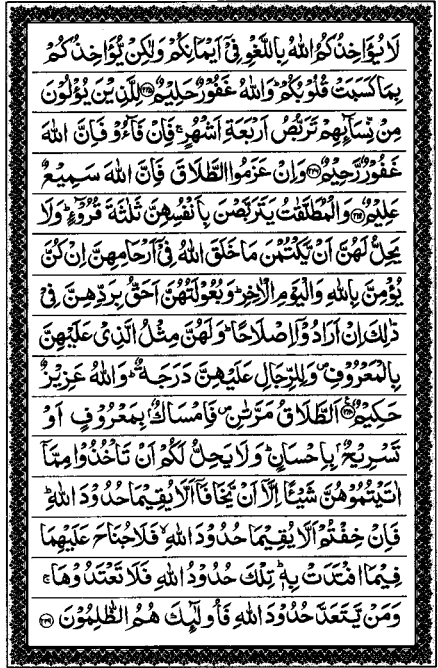 لَا يُؤَاخِذُكُمُ اللّٰهُ بِاللَّغْوِ فِيْٓ اَيْمَانِكُمْ وَلٰكِنْ يُّؤَاخِذُكُمْ
بِمَا كَسَبَتْ قُلُوْبُكُمْ ؕ وَاللّٰهُ غَفُوْرٌ حَلِيْمٌ ﴿۲۲۵﴾ لِلَّذِيْنَ يُؤْلُوْنَ
مِنْ نِّسَآئِهِمْ تَرَبُّصُ اَرْبَعَةِ اَشْهُرٍ ۚ فَاِنْ فَآءُوْ فَاِنَّ اللّٰهَ
غَفُوْرٌ رَّحِيْمٌ ﴿۲۲۶﴾ وَاِنْ عَزَمُوا الطَّلَاقَ فَاِنَّ اللّٰهَ سَمِيْعٌ
عَلِيْمٌ ﴿۲۲۷﴾ وَالْمُطَلَّقٰتُ يَتَرَبَّصْنَ بِاَنْفُسِهِنَّ ثَلٰثَةَ قُرُوْٓءٍ ؕ وَلَا
يَحِلُّ لَهُنَّ اَنْ يَّكْتُمْنَ مَا خَلَقَ اللّٰهُ فِيْٓ اَرْحَامِهِنَّ اِنْ كُنَّ
يُؤْمِنَّ بِاللّٰهِ وَالْيَوْمِ الْاٰخِرِ ؕ وَبُعُوْلَتُهُنَّ اَحَقُّ بِرَدِّهِنَّ فِيْ
ذٰلِكَ اِنْ اَرَادُوْٓا اِصْلَاحًا ؕ وَلَهُنَّ مِثْلُ الَّذِيْ عَلَيْهِنَّ
بِالْمَعْرُوْفِ ۪ وَلِلرِّجَالِ عَلَيْهِنَّ دَرَجَةٌ ؕ وَاللّٰهُ عَزِيْزٌ
حَكِيْمٌ ﴿۲۲۸﴾ اَلطَّلَاقُ مَرَّتٰنِ ۪ فَاِمْسَاكٌۢ بِمَعْرُوْفٍ اَوْ
تَسْرِيْحٌۢ بِاِحْسَانٍ ؕ وَلَا يَحِلُّ لَكُمْ اَنْ تَاْخُذُوْا مِمَّآ
اٰتَيْتُمُوْهُنَّ شَيْـًٔا اِلَّآ اَنْ يَّخَافَآ اَلَّا يُقِيْمَا حُدُوْدَ اللّٰهِ ؕ
فَاِنْ خِفْتُمْ اَلَّا يُقِيْمَا حُدُوْدَ اللّٰهِ ۙ فَلَا جُنَاحَ عَلَيْهِمَا
فِيْمَا افْتَدَتْ بِهٖ ؕ تِلْكَ حُدُوْدُ اللّٰهِ فَلَا تَعْتَدُوْهَا ۚ
وَمَنْ يَّتَعَدَّ حُدُوْدَ اللّٰهِ فَاُولٰٓئِكَ هُمُ الظّٰلِمُوْنَ ﴿۲۲۹﴾